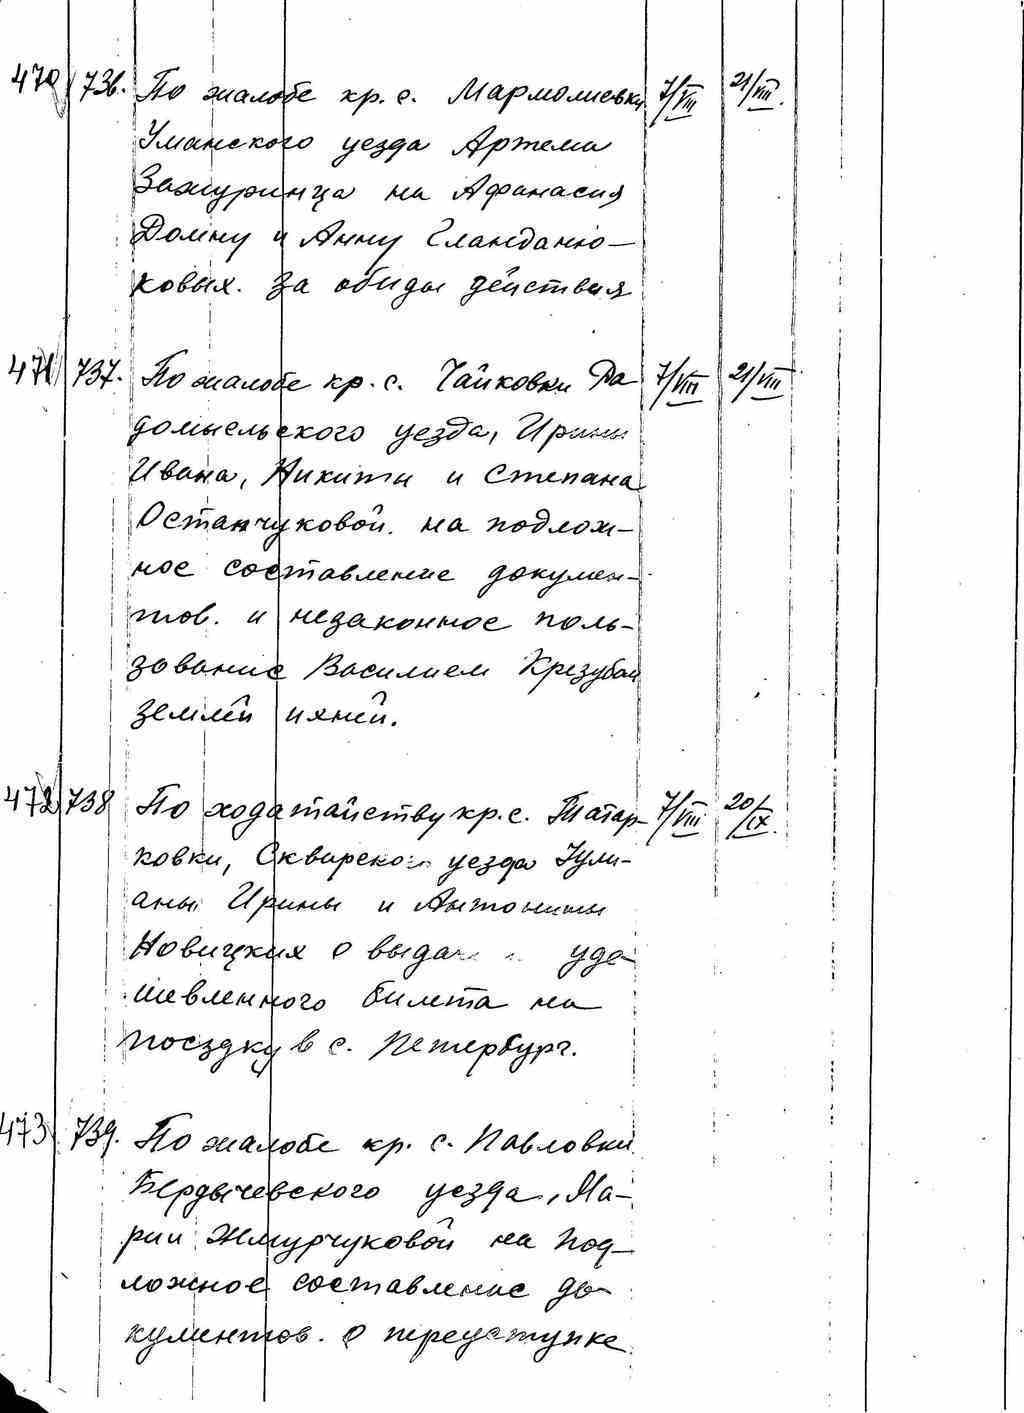 470 736. По жалобе кр. с. Мармолиевки 7/VIII 21/VIII.
Уманского уезда Артема
Зажуринца на Афанасия
Домну и Анну Гланданю-
ковых. за обиды действия
471 737. По жалобе кр. с. Чайковки Ра 7/VIII 21/VIII
домысльского уезда, Ирины
Ивана, Никиты и Степана
Останчуковой. на подлож-
ное составление докумен-
тов. и незаконное поль-
зование Василием Крезубом
землей ихней.
472 738 По ходатайству кр. с. Татар- 7/VIII 20/IX.
ковки, Сквирско уезда Иули-
аны Ирины и Антонины
Новицких о выдач уде-
шевленного билета на
поездку в с. Петербург.
473 739. По жалобе кр. с. Павловки
Бердычевского уезда, Ма-
рии Жмурчуковой на под-
ложное составление до-
кументов. о переуступке